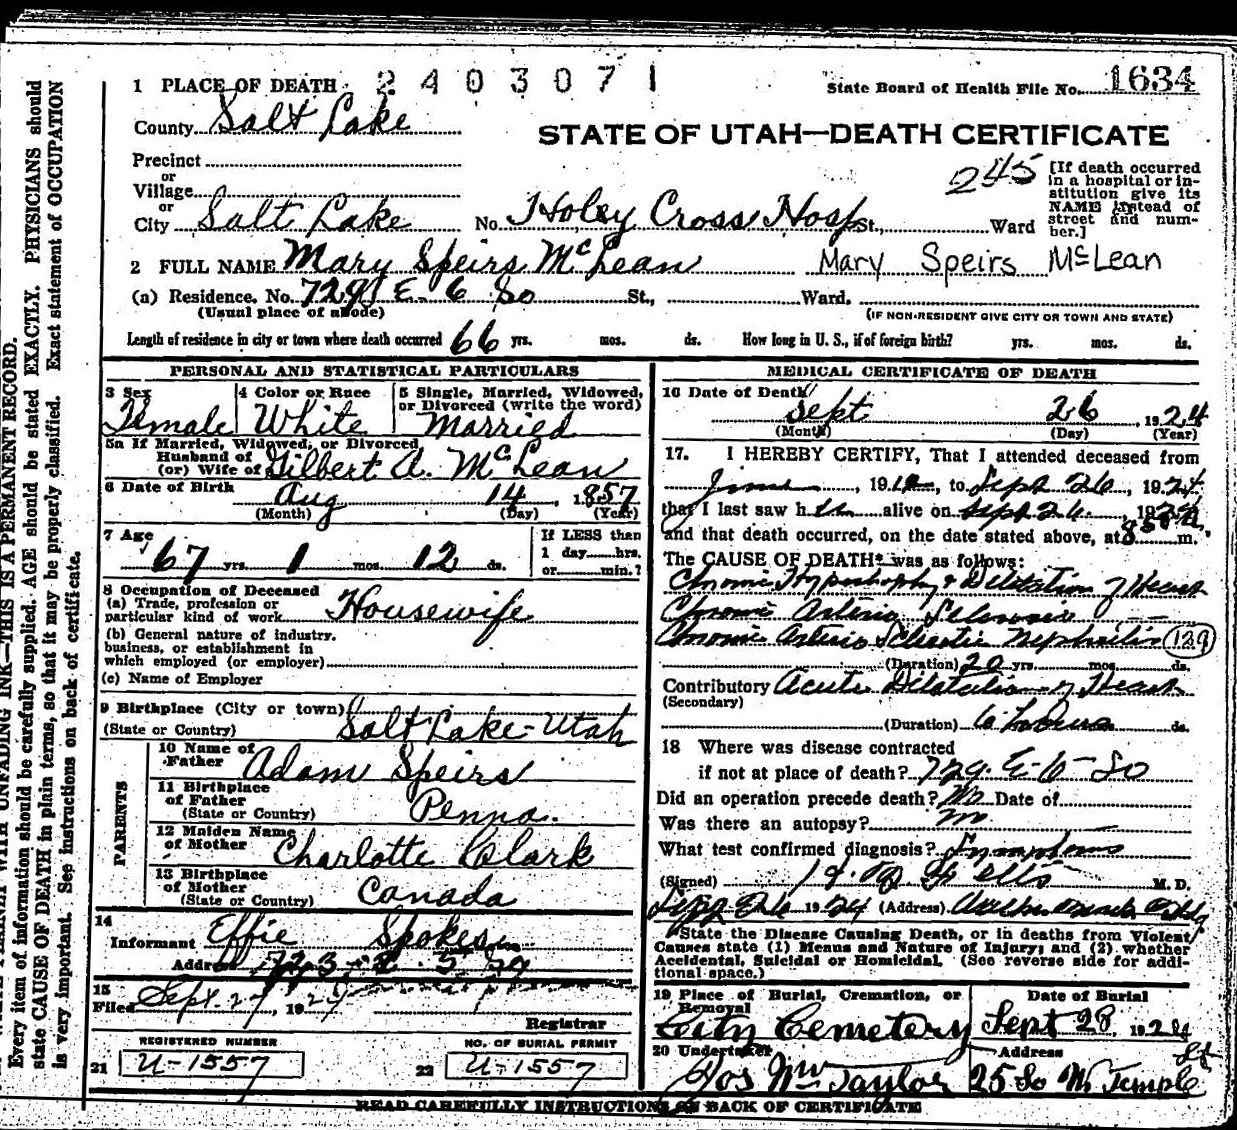 1 PLACE OF DEATH 2403071
State Board of Health File No. 1634
County Salt Lake
STATE OF UTAH—DEATH CERTIFICATE
Precinct
or
Village
or
City Salt Lake No. Holey Cross Hosp St., Ward
245
[If death occurred
in a hospital or in-
stitution give its
NAME instead of
street and num-
ber.]
2 FULL NAME Mary Speirs McLean Mary Speirs McLean
(a) Residence. No. 729 E. 6 So St., Ward.
(Usual place of abode) (IF NON-RESIDENT GIVE CITY OR TOWN AND STATE)
Length of residence in city or town where death occurred 66 yrs. mos. ds. How long in U. S., if of foreign birth? yrs. mos. ds.
PERSONAL AND STATISTICAL PARTICULARS
3 Sex 4 Color or Race 5 Single, Married, Widowed,
or Divorced (write the word)
Female White Married
5a If Married, Widowed, or Divorced
Husband of
(or) Wife of Gilbert A. McLean
6 Date of Birth Aug 14, 1857
(Month) (Day) (Year)
7 Age 67 yrs. 1 mos. 12 ds.
If LESS than
1 day......hrs.
or......min.?
8 Occupation of Deceased
(a) Trade, profession or
particular kind of work Housewife
(b) General nature of industry.
business, or establishment in
which employed (or employer)
(c) Name of Employer
9 Birthplace (City or town)
(State or Country) Salt Lake-Utah
PARENTS
10 Name of
Father Adam Speirs
11 Birthplace
of Father
(State or Country) Penna.
12 Maiden Name
of Mother Charlotte Clark
13 Birthplace
of Mother
(State or Country) Canada
14
Informant Effie
Address 723
15
Filed Sept. 27, 1924
Registrar
REGISTERED NUMBER
21 U-1557
NO. OF BURIAL PERMIT
22 U-1557
MEDICAL CERTIFICATE OF DEATH
16 Date of Death
Sept 26, 1924
(Month) (Day) (Year)
17. I HEREBY CERTIFY, That I attended deceased from
June, 19, to Sept 26, 1924
that I last saw her alive on Sept 26, 1924
and that death occurred, on the date stated above, at 8 50 m.
The CAUSE OF DEATH* was as follows:
Chronic Hypertrophy & Dilatation of Heart
Chronic Arterio Sclerosis
Chronic Arterio Sclerotic Nephritis 129
(Duration) 20 yrs. mos. ds.
Contributory Acute Dilatation of Heart
(Secondary)
(Duration) 6 hours ds.
18 Where was disease contracted
if not at place of death? 729. E-6-So
Did an operation precede death? No Date of
Was there an autopsy? no
What test confirmed diagnosis? Symptoms
(Signed) M. D.
Sept 26 1924 (Address)
*State the Disease Causing Death, or in deaths from Violent
Causes state (1) Means and Nature of Injury; and (2) whether
Accidental, Suicidal or Homicidal. (See reverse side for addi-
tional space.)
19 Place of Burial, Cremation, or
Removal
City Cemetery
Date of Burial
Sept 28 1924
20 Undertaker Address
Jos Wm Taylor 25 So W. Temple St
READ CAREFULLY INSTRUCTIONS ON BACK OF CERTIFICATE
WITH UNFADING INK—THIS IS A PERMANENT RECORD.
Every item of information should be carefully supplied. AGE should be stated EXACTLY. PHYSICIANS should
state CAUSE OF DEATH in plain terms, so that it may be properly classified. Exact statement of OCCUPATION
is very important. See instructions on back of certificate.